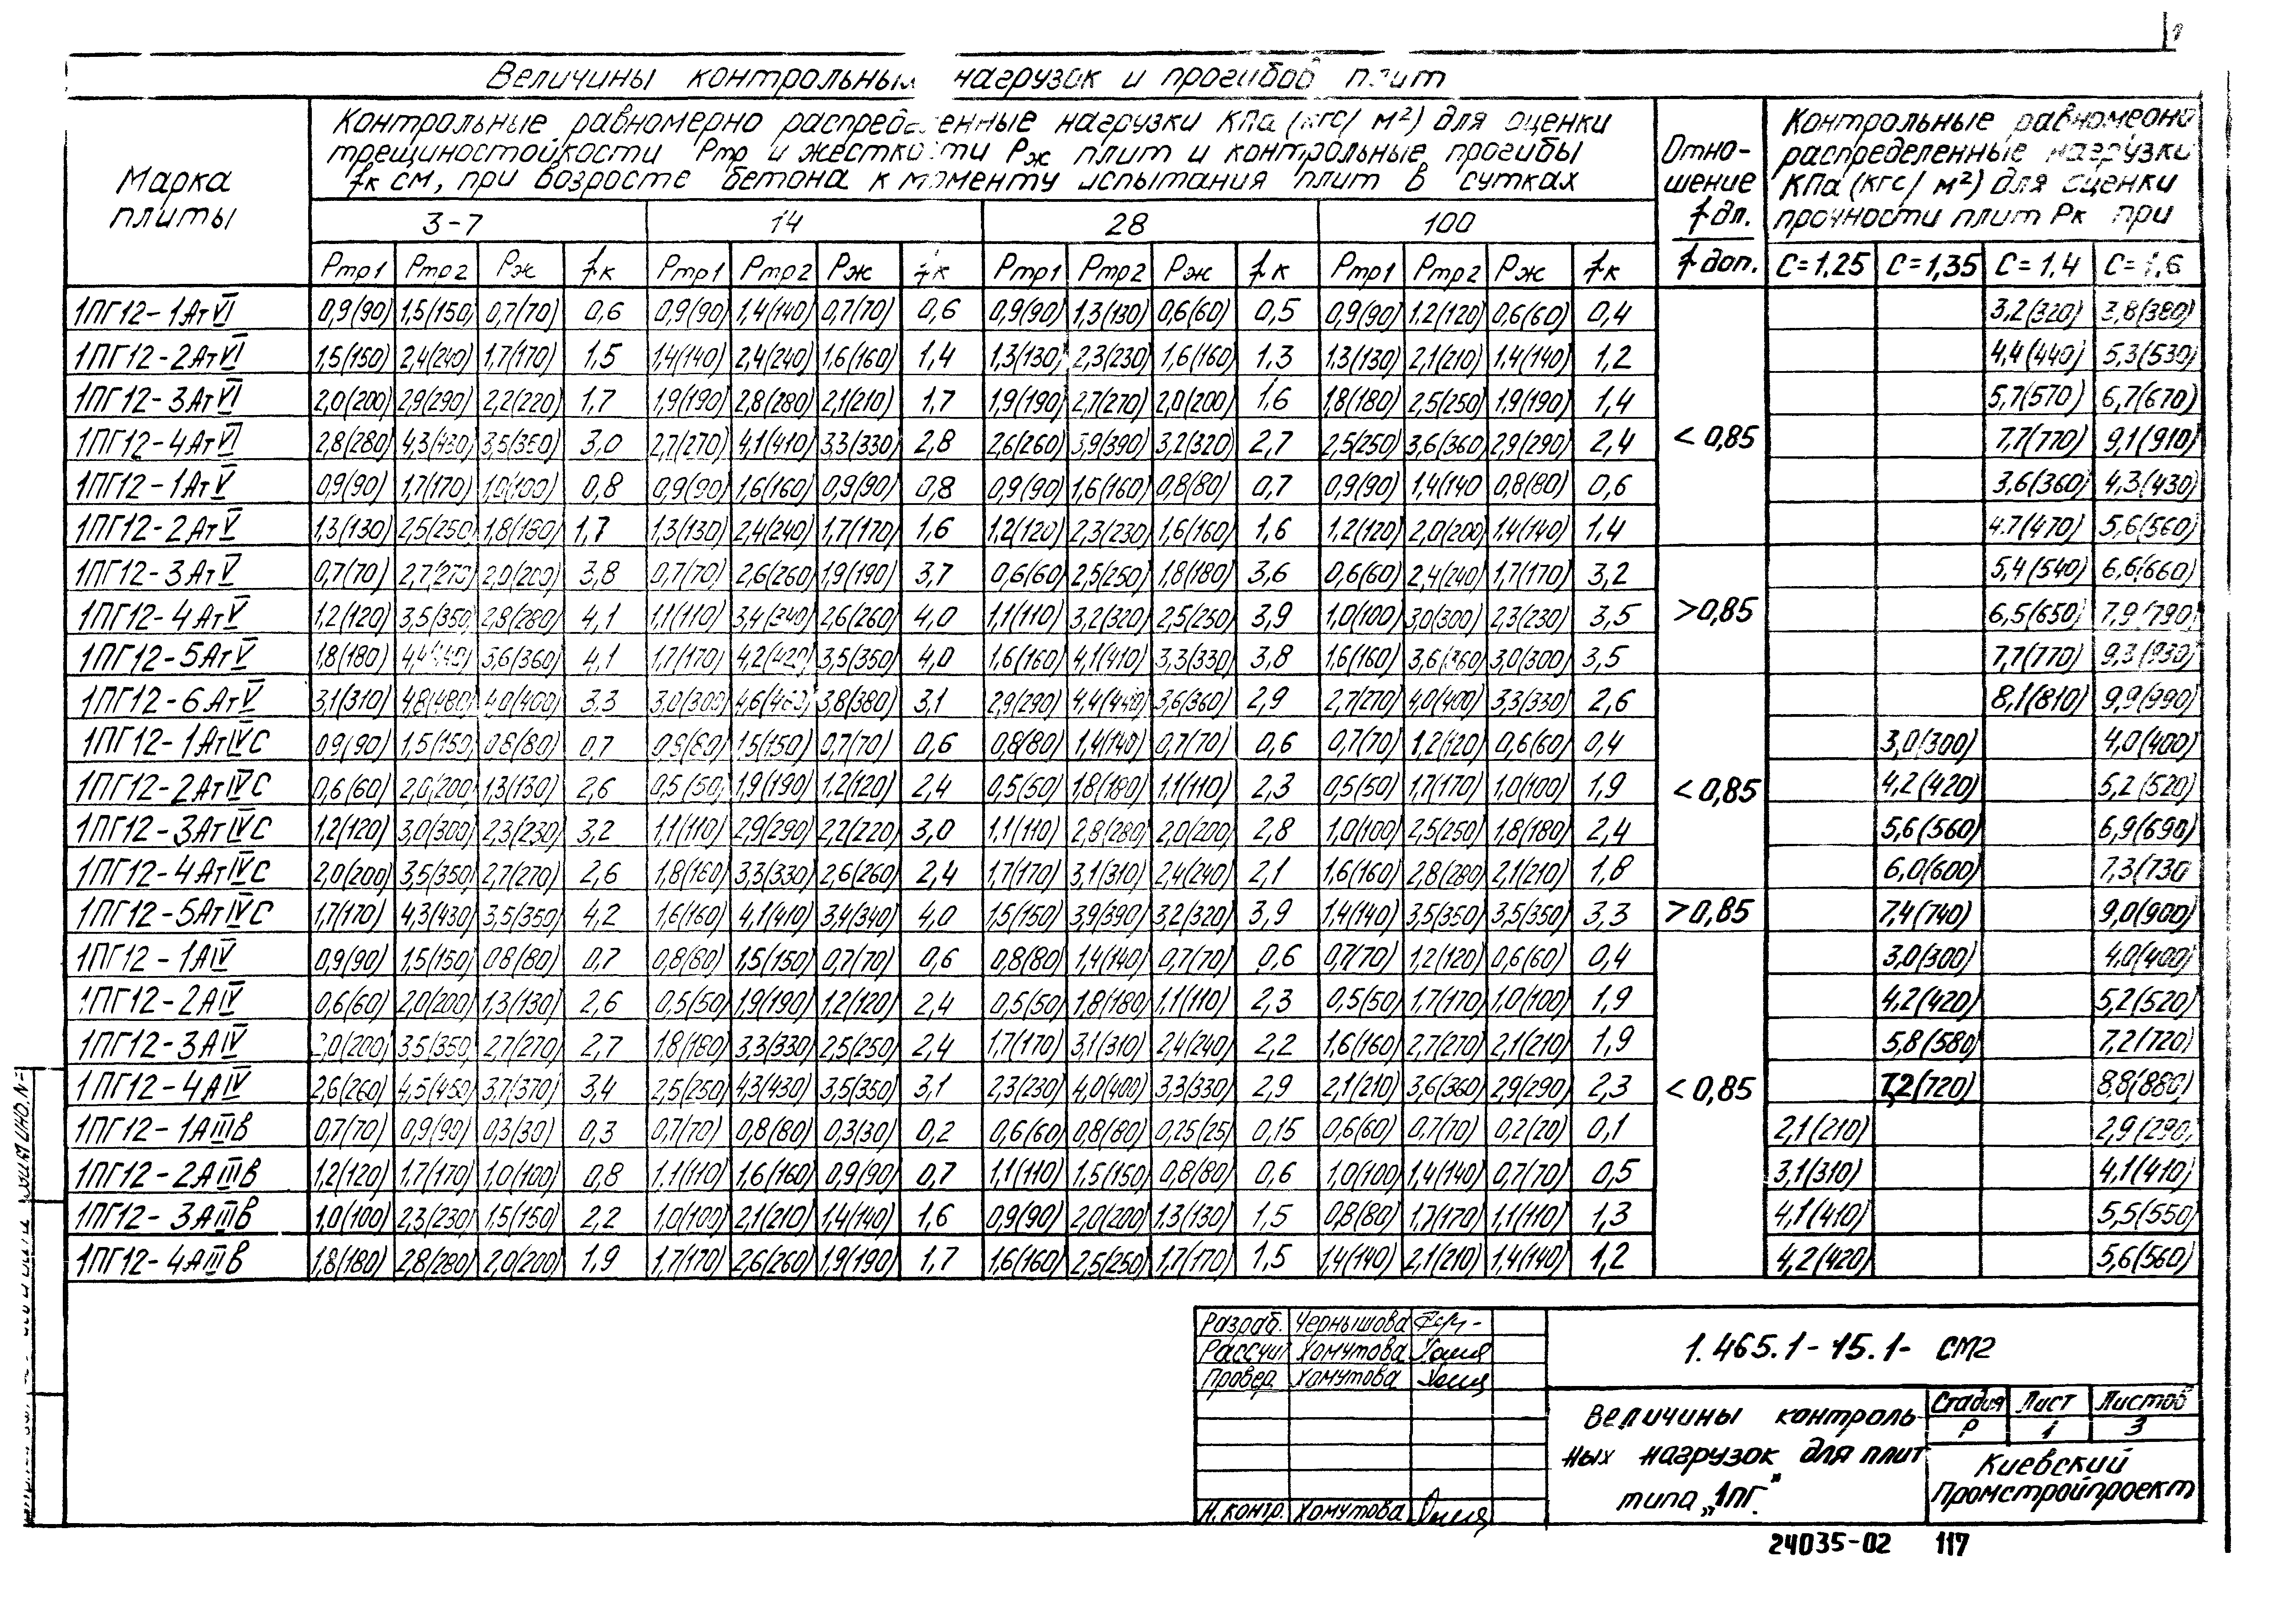 Величины контрольны нагрузок и прогибов плит
Марка плиты
Контрольные равномерно распределенные нагрузки КПа (кгс/м²) для оценки
трещиностойкости Ртр и жесткости Рж плит и контрольные прогибы
fк см, при возросте бетона к моменту испытания плит в сутках
Отно-
шение
f дл.
f доп.
Контрольные равномерно
распределенные нагрузки
КПа (кгс/м²) для оценки
прочности плит Рк при
3-7 14 28 100
Ртр1 Ртр2 Рж fк Ртр1 Ртр2 Рж fк Ртр1 Ртр2 Рж fк Ртр1 Ртр2 Рж fк С=1,25 С=1,35 С=1,4 С=1,6
1ПГ12-1АтVI 0,9(90) 1,5(150) 0,7(70) 0,6 0,9(90) 1,4(140) 0,7(70) 0,6 0,9(90) 1,3(130) 0,6(60) 0,5 0,9(90) 1,2(120) 0,6(60) 0,4 3,2(320) 3,8(380)
1ПГ12-2АтVI 1,5(150) 2,4(240) 1,7(170) 1,5 1,4(140) 2,4(240) 1,6(160) 1,4 1,3(130) 2,3(230) 1,6(160) 1,3 1,3(130) 2,1(210) 1,4(140) 1,2 4,4(440) 5,3(530)
1ПГ12-3АтVI 2,0(200) 2,9(290) 2,2(220) 1,7 1,9(190) 2,8(280) 2,1(210) 1,7 1,9(190) 2,7(270) 2,0(200) 1,6 1,8(180) 2,5(250) 1,9(190) 1,4 5,7(570) 6,7(670)
1ПГ12-4АтVI 2,8(280) 4,3(430) 3,5(350) 3,0 2,7(270) 4,1(410) 3,3(330) 2,8 2,6(260) 3,9(390) 3,2(320) 2,7 2,5(250) 3,6(360) 2,9(290) 2,4 < 0,85 7,7(770) 9,1(910)
1ПГ12-1АтV 0,9(90) 1,7(170) 1,0(100) 0,8 0,9(90) 1,6(160) 0,9(90) 0,8 0,9(90) 1,6(160) 0,8(80) 0,7 0,9(90) 1,4(140 0,8(80) 0,6 3,6(360) 4,3(430)
1ПГ12-2АтV 1,3(130) 2,5(250) 1,8(180) 1,7 1,3(130) 2,4(240) 1,7(170) 1,6 1,2(120) 2,3(230) 1,6(160) 1,6 1,2(120) 2,0(200) 1,4(140) 1,4 4,7(470) 5,6(560)
1ПГ12-3АтV 0,7(70) 2,7(270) 2,0(200) 3,8 0,7(70) 2,6(260) 1,9(190) 3,7 0,6(60) 2,5(250) 1,8(180) 3,6 0,6(60) 2,4(240) 1,7(170) 3,2 5,4(540) 6,6(660)
1ПГ12-4АтV 1,2(120) 3,5(350) 2,8(280) 4,1 1,1(110) 3,4(340) 2,6(260) 4,0 1,1(110) 3,2(320) 2,5(250) 3,9 1,0(100) 3,0(300) 2,3(230) 3,5 >0,85 6,5(650) 7,9(790)
1ПГ12-5АтV 1,8(180) 4,4(440) 3,6(360) 4,1 1,7(170) 4,2(420) 3,5(350) 4,0 1,6(160) 4,1(410) 3,3(330) 3,8 1,6(160) 3,6(360) 3,0(300) 3,5 7,7(770) 9,3(930)
1ПГ12-6АтV 3,1(310) 4,8(480) 4,0(400) 3,3 3,0(300) 4,6(460) 3,8(380) 3,1 2,9(290) 4,4(440) 3,6(360) 2,9 2,7(270) 4,0(400) 3,3(330) 2,6 8,1(810) 9,9(990)
1ПГ12-1АтIVС 0,9(90) 1,5(150) 0,8(80) 0,7 0,8(80) 1,5(150) 0,7(70) 0,6 0,8(80) 1,4(140) 0,7(70) 0,6 0,7(70) 1,2(120) 0,6(60) 0,4 3,0(300) 4,0(400)
1ПГ12-2АтIVС 0,6(60) 2,0(200) 1,3(130) 2,6 0,5(50) 1,9(190) 1,2(120) 2,4 0,5(50) 1,8(180) 1,1(110) 2,3 0,5(50) 1,7(170) 1,0(100) 1,9 < 0,85 4,2(420) 5,2(520)
1ПГ12-3АтIVС 1,2(120) 3,0(300) 2,3(230) 3,2 1,1(110) 2,9(290) 2,2(220) 3,0 1,1(110) 2,8(280) 2,0(200) 2,8 1,0(100) 2,5(250) 1,8(180) 2,4 5,6(560) 6,9(690)
1ПГ12-4АтIVС 2,0(200) 3,5(350) 2,7(270) 2,6 1,8(160) 3,3(330) 2,6(260) 2,4 1,7(170) 3,1(310) 2,4(240) 2,1 1,6(160) 2,8(280) 2,1(210) 1,8 6,0(600) 7,3(730
1ПГ12-5АтIVС 1,7(170) 4,3(430) 3,5(350) 4,2 1,6(160) 4,1(410) 3,4(340) 4,0 1,5(150) 3,9(390) 3,2(320) 3,9 1,4(140) 3,5(350) 3,5(350) 3,3 >0,85 7,4(740) 9,0(900)
1ПГ12-1АIV 0,9(90) 1,5(150) 0,8(80) 0,7 0,8(80) 1,5(150) 0,7(70) 0,6 0,8(80) 1,4(140) 0,7(70) 0,6 0,7(70) 1,2(120) 0,6(60) 0,4 3,0(300) 4,0(400)
1ПГ12-2АIV 0,6(60) 2,0(200) 1,3(130) 2,6 0,5(50) 1,9(190) 1,2(120) 2,4 0,5(50) 1,8(180) 1,1(110) 2,3 0,5(50) 1,7(170) 1,0(100) 1,9 4,2(420) 5,2(520)
1ПГ12-3АIV 2,0(200) 3,5(350) 2,7(270) 2,7 1,8(180) 3,3(330) 2,5(250) 2,4 1,7(170) 3,1(310) 2,4(240) 2,2 1,6(160) 2,7(270) 2,1(210) 1,9 5,8(580) 7,2(720)
1ПГ12-4АIV 2,6(260) 4,5(450) 3,7(370) 3,4 2,5(250) 4,3(430) 3,5(350) 3,1 2,3(230) 4,0(400) 3,3(330) 2,9 2,1(210) 3,6(360) 2,9(290) 2,3 < 0,85 7,2(720) 8,8(880)
1ПГ12-1АIIIв 0,7(70) 0,9(90) 0,3(30) 0,3 0,7(70) 0,8(80) 0,3(30) 0,2 0,6(60) 0,8(80) 0,25(25) 0,15 0,6(60) 0,7(70) 0,2(20) 0,1 2,1(210) 2,9(290)
1ПГ12-2АIIIв 1,2(120) 1,7(170) 1,0(100) 0,8 1,1(110) 1,6(160) 0,9(90) 0,7 1,1(110) 1,5(150) 0,8(80) 0,6 1,0(100) 1,4(140) 0,7(70) 0,5 3,1(310) 4,1(410)
1ПГ12-3АIIIв 1,0(100) 2,3(230) 1,5(150) 2,2 1,0(100) 2,1(210) 1,4(140) 1,6 0,9(90) 2,0(200) 1,3(130) 1,5 0,8(80) 1,7(170) 1,1(110) 1,3 4,1(410) 5,5(550)
1ПГ12-4АIIIв 1,8(180) 2,8(280) 2,0(200) 1,9 1,7(170) 2,6(260) 1,9(190) 1,7 1,6(160) 2,5(250) 1,7(170) 1,5 1,4(140) 2,1(210) 1,4(140) 1,2 4,2(420) 5,6(560)
Разраб. Чернышова
Рассчит Хомутова
Провер. Хомутова
Н.контр. Хомутова
1.465.1-15.1- СМ2
Величины контроль
ных нагрузок для плит
типа „1ПГ"
Стадия Лист Листов
Р 1 3
Киевский
Промстройпроект
24035-02 117